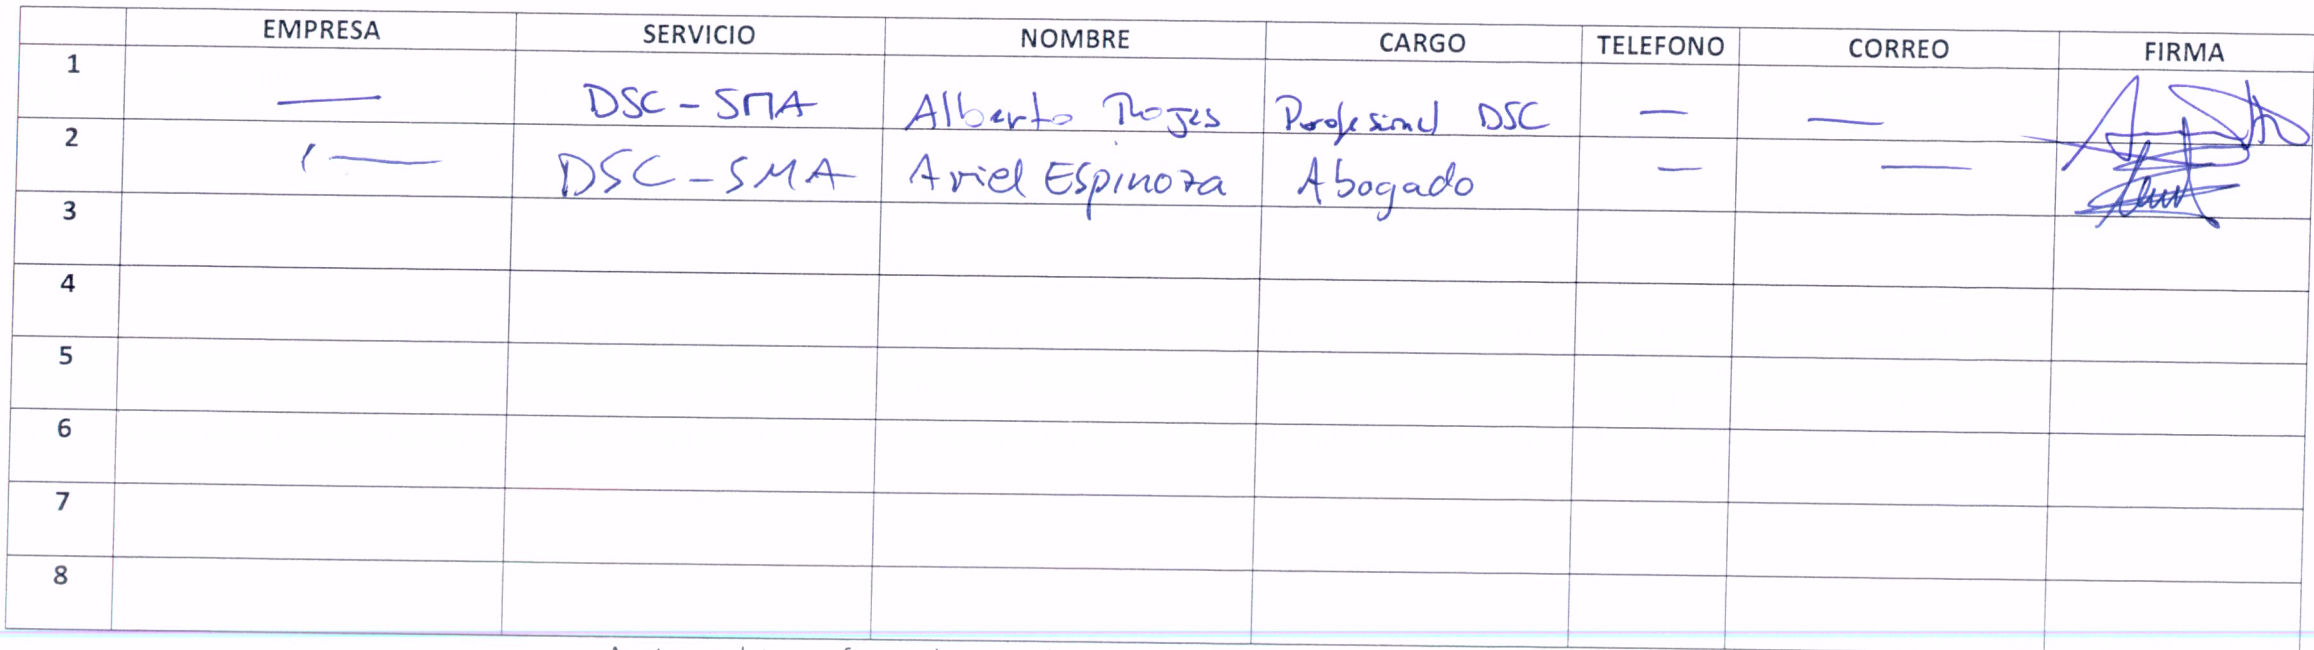 EMPRESA SERVICIO NOMBRE CARGO TELEFONO CORREO FIRMA
1 — DSC - SMA Alberto Rojas Profesional DSC — —
2 — DSC - SMA Ariel Espinoza Abogado — —
3
4
5
6
7
8